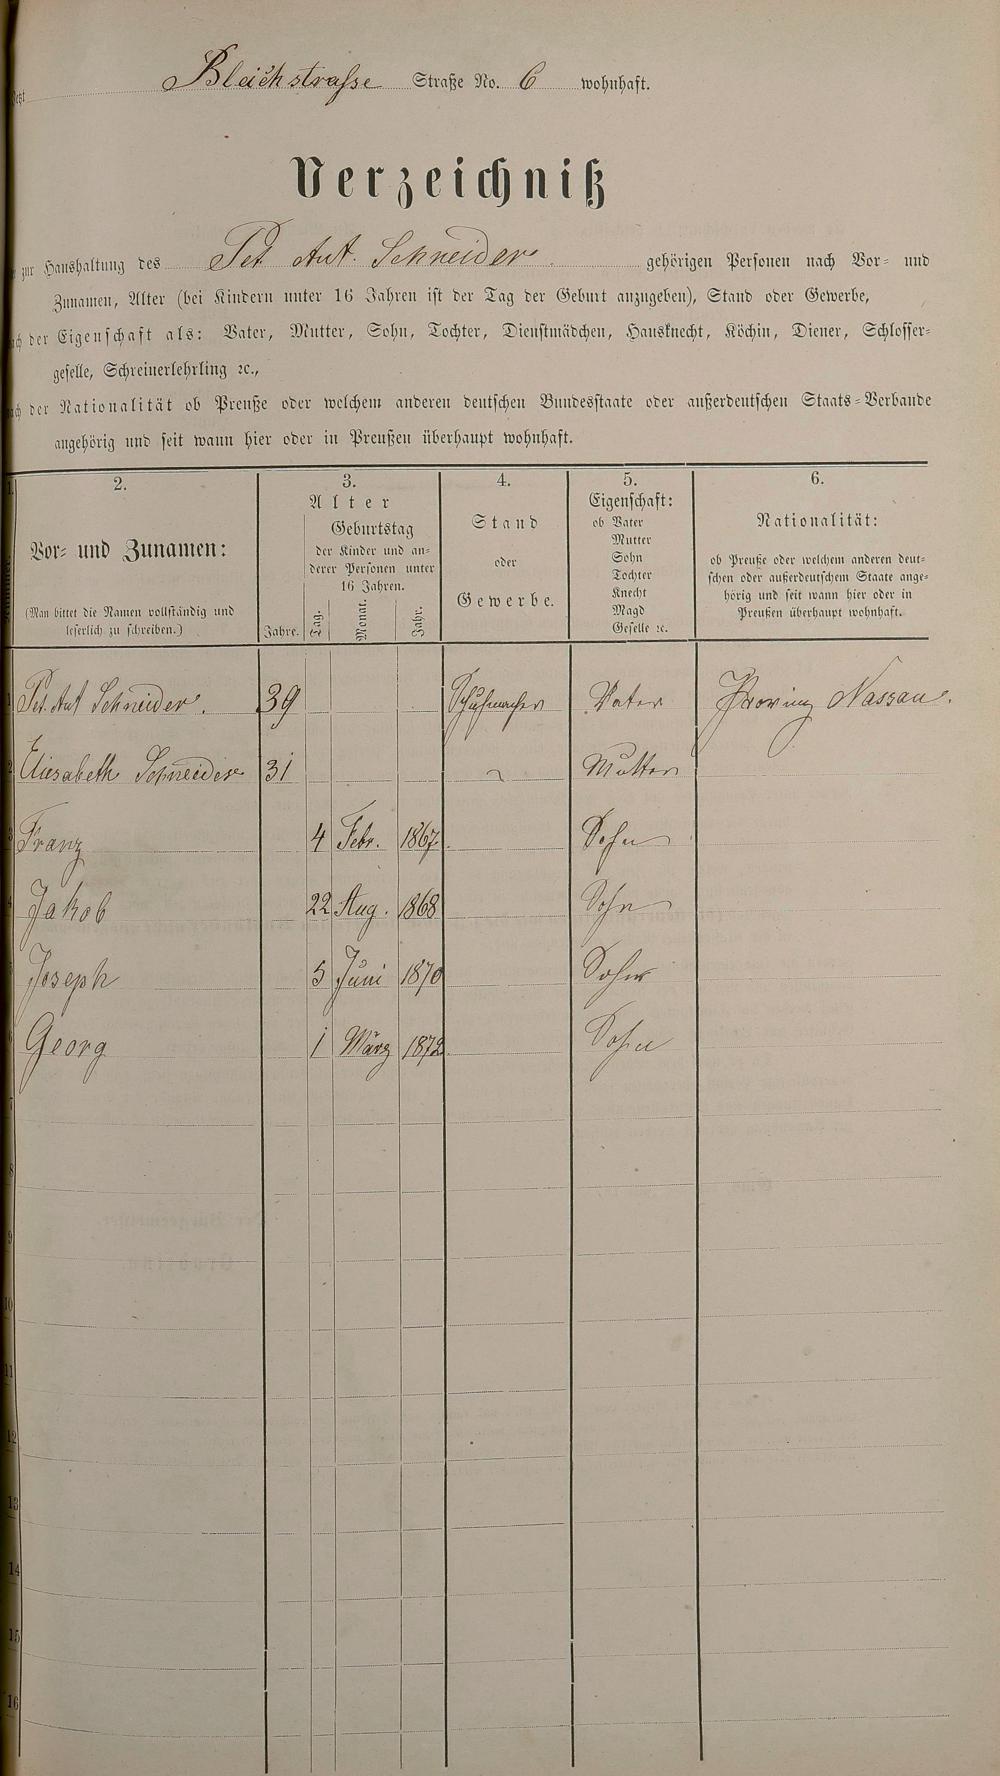 Bleichstrasse Straße No. 6 wohnhaft.
Verzeichniß
zur Haushaltung des Pet. Ant. Schneider gehörigen Personen nach Vor- und
Zunamen, Alter (bei Kindern unter 16 Jahren ist der Tag der Geburt anzugeben), Stand oder Gewerbe,
der Eigenschaft als: Vater, Mutter, Sohn, Tochter, Dienstmädchen, Hausknecht, Köchin, Diener, Schlosser-
geselle, Schreinerlehrling ꝛc.,
der Nationalität ob Preuße oder welchem anderen deutschen Bundesstaate oder außerdeutschen Staats-Verbande
angehörig und seit wann hier oder in Preußen überhaupt wohnhaft.
2.
Vor- und Zunamen:
(Man bittet die Namen vollständig und
leserlich zu schreiben.)
3.
Alter
Geburtstag
der Kinder und an-
derer Personen unter
16 Jahren.
Jahre. Tag. Monat. Jahr.
4.
Stand
oder
Gewerbe.
5.
Eigenschaft:
ob Vater
Mutter
Sohn
Tochter
Knecht
Magd
Geselle ꝛc.
6.
Nationalität:
ob Preuße oder welchem anderen deut-
schen oder außerdeutschem Staate ange-
hörig und seit wann hier oder in
Preußen überhaupt wohnhaft.
1 Pet. Ant Schneider. 39 Schuhmacher Vater Provinz Nassau.
2 Eliesabeth Schneider 31 ~ Mutter
3 Franz 4 Febr. 1867. Sohn
4 Jakob 22 Aug. 1868 Sohn
5 Joseph 5 Juni 1870 Sohn
6 Georg 1 März 1872. Sohn
7
8
9
10
11
12
13
14
15
16